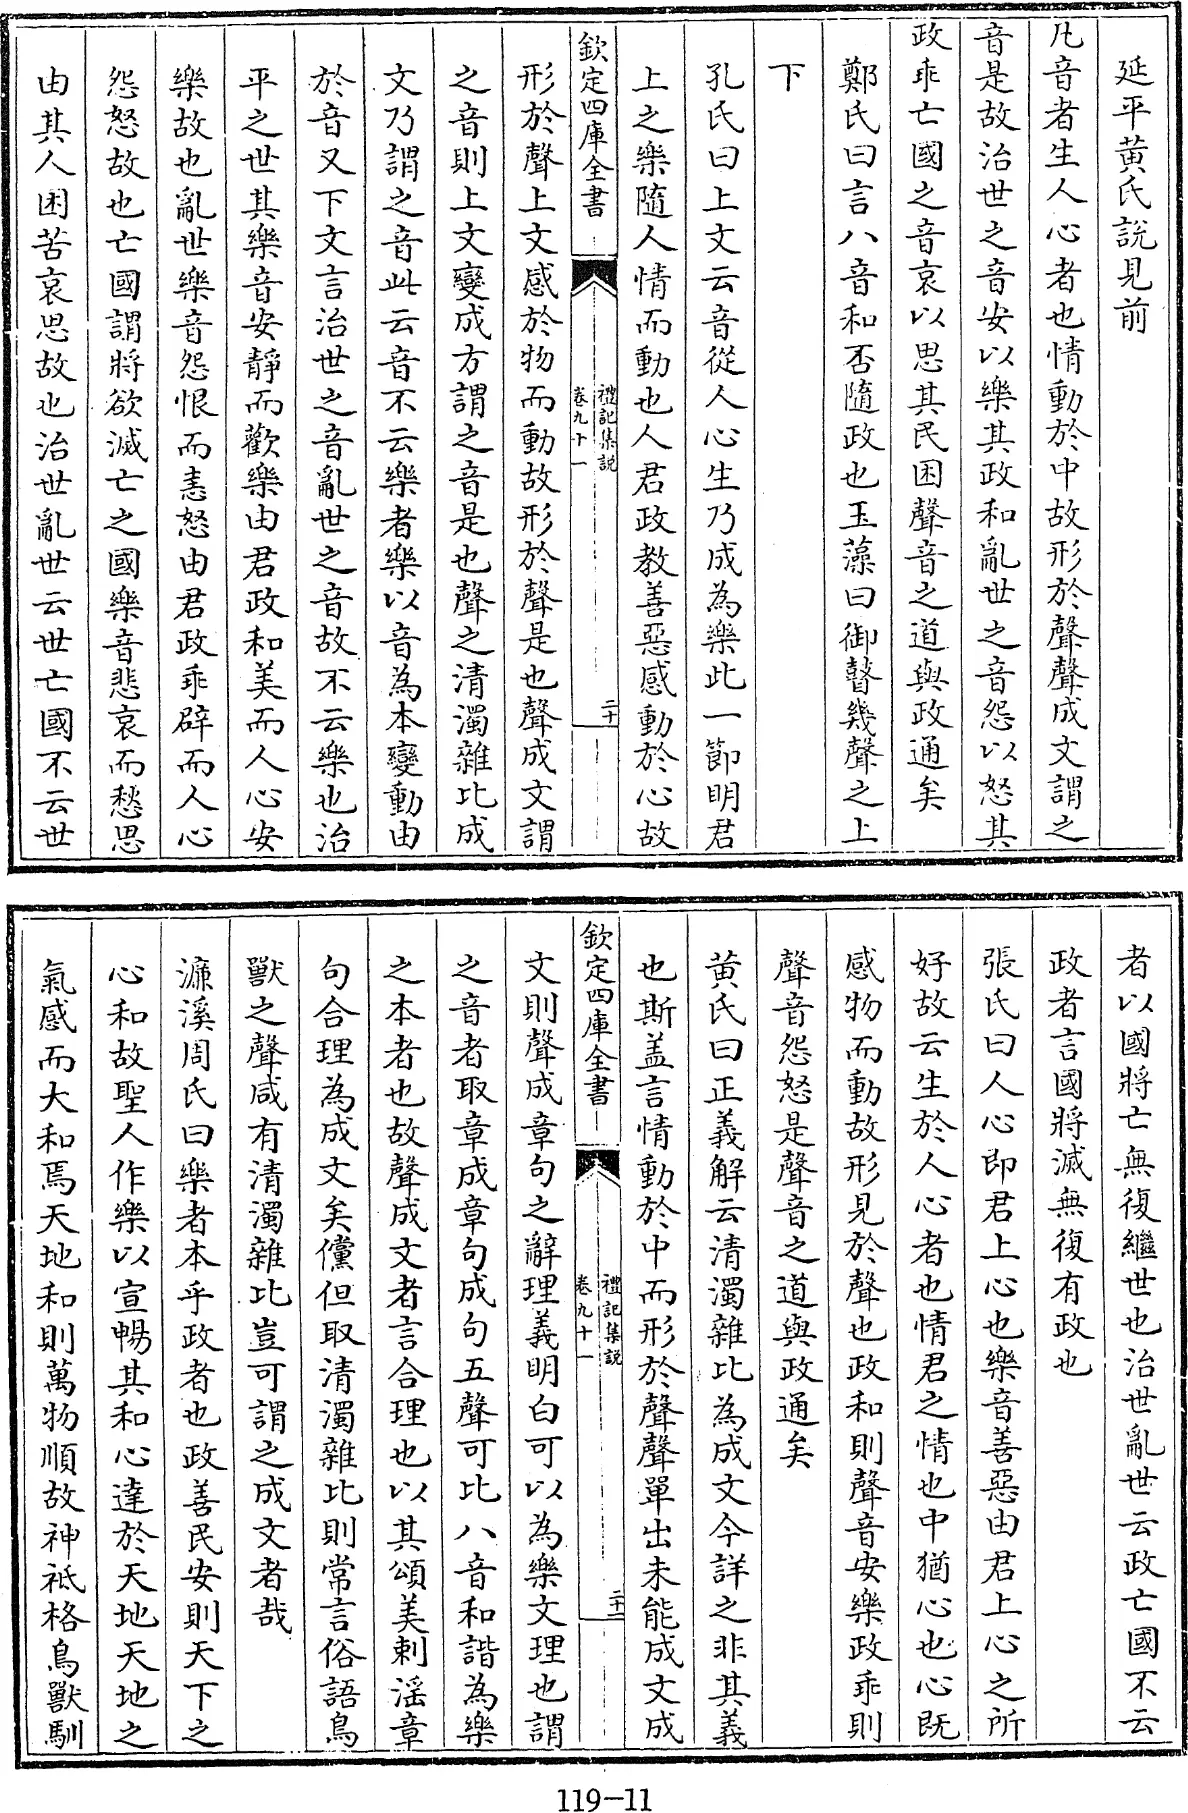 延平黃氏說見前
凡音者生人心者也情動於中故形於聲聲成文謂之
音是故治世之音安以樂其政和亂世之音怨以怒其
政乖亡國之音哀以思其民困聲音之道與政通矣
鄭氏曰言八音和否隨政也玉藻曰御瞽幾聲之上
下
孔氏曰上文云音從人心生乃成為樂此一節明君
上之樂隨人情而動也人君政教善惡感動於心故
欽定四庫全書
禮記集說
卷九十一
二十
形於聲上文感於物而動故形於聲是也聲成文謂
之音則上文變成方謂之音是也聲之清濁雜比成
文乃謂之音此云音不云樂者樂以音為本變動由
於音又下文言治世之音亂世之音故不云樂也治
平之世其樂音安靜而歡樂由君政和美而人心安
樂故也亂世樂音怨恨而恚怒由君政乖辟而人心
怨怒故也亡國謂將欲滅亡之國樂音悲哀而愁思
由其人困苦哀思故也治世亂世云世亡國不云世
者以國將亡無復繼世也治世亂世云政亡國不云
政者言國將滅無復有政也
張氏曰人心即君上心也樂音善惡由君上心之所
好故云生於人心者也情君之情也中猶心也心既
感物而動故形見於聲也政和則聲音安樂政乖則
聲音怨怒是聲音之道與政通矣
黃氏曰正義解云清濁雜比為成文今詳之非其義
也斯盖言情動於中而形於聲聲單出未能成文成
欽定四庫全書
禮記集說
卷九十一
二十一
文則聲成章句之辭理義明白可以為樂文理也謂
之音者取章成章句成句五聲可比八音和諧為樂
之本者也故聲成文者言合理也以其頌美刺淫章
句合理為成文矣儻但取清濁雜比則常言俗語鳥
獸之聲咸有清濁雜比豈可謂之成文者哉
濂溪周氏曰樂者本乎政者也政善民安則天下之
心和故聖人作樂以宣暢其和心達於天地天地之
氣感而大和焉天地和則萬物順故神祗格鳥獸馴
119-11